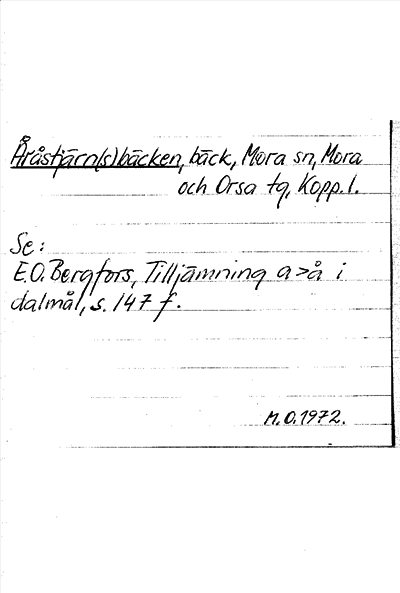 Åråstjärn(s)bäcken, bäck, Mora sn, Mora
och Orsa tg, Kopp. l.
Se:
E.O. Bergfors, Tilljämning a>å i
dalmål, s. 147 f.
M.O. 1972.